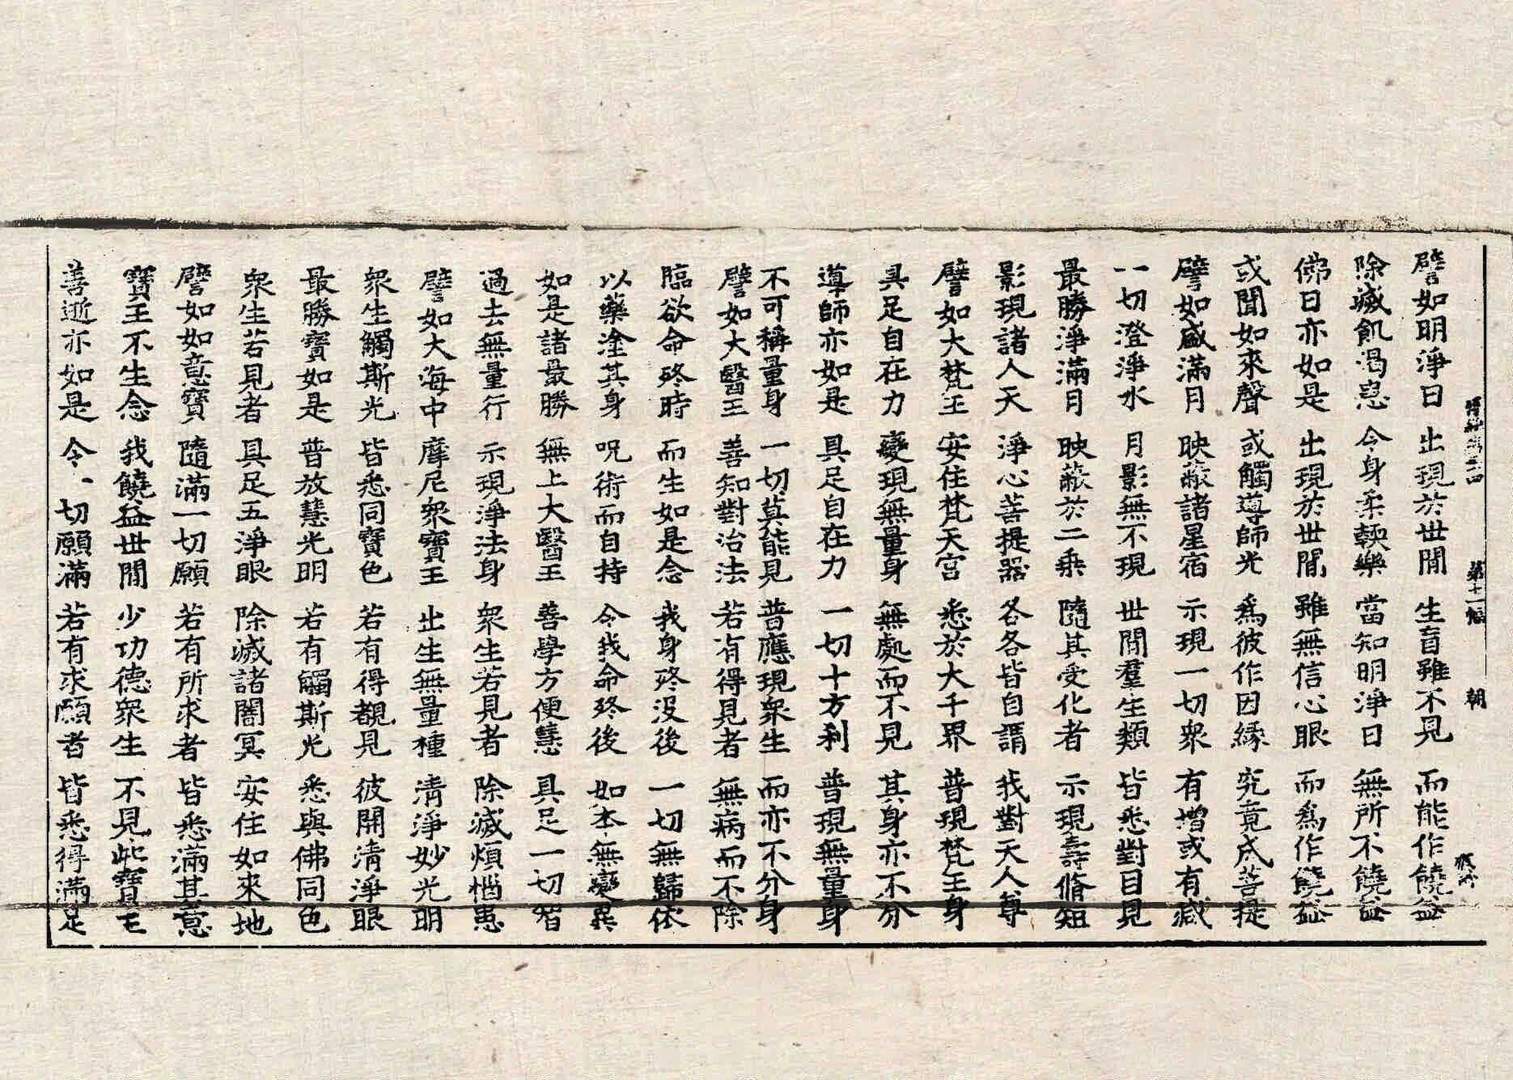 譬如明淨日 出現於世閒 生盲雖不見 而能作饒益
除滅飢渴患 令身柔輭樂 當知明淨日 無所不饒益
佛日亦如是 出現於世閒 雖無信心眼 而爲作饒益
或聞如來聲 或觸導師光 爲彼作因緣 究竟成菩提
譬如盛滿月 映蔽諸星宿 示現一切衆 有增或有減
一切澄淨水 月影無不現 世閒羣生類 皆悉對目見
最勝淨滿月 映蔽於二乘 隨其受化者 示現壽脩短
影現諸人天 淨心菩提器 各各皆自謂 我對天人尊
譬如大梵王 安住梵天宮 悉於大千界 普現梵王身
具足自在力 變現無量身 無處而不見 其身亦不分
導師亦如是 具足自在力 一切十方刹 普現無量身
不可稱量身 一切莫能見 普應現衆生 而亦不分身
譬如大醫王 善知對治法 若有得見者 無病而不除
臨欲命終時 而生如是念 我身終没後 一切無歸依
以藥塗其身 呪術而自持 令我命終後 如本無變異
如是諸最勝 無上大醫王 善學方便慧 具足一切智
過去無量行 示現淨法身 衆生若見者 除滅煩惱患
譬如大海中 摩尼衆寶王 出生無量種 清淨妙光明
衆生觸斯光 皆悉同寶色 若有得覩見 彼開清淨眼
最勝寶如是 普放慧光明 若有觸斯光 悉與佛同色
衆生若見者 具足五淨眼 除滅諸闇冥 安住如來地
譬如如意寶 隨滿一切願 若有所求者 皆悉滿其意
寶王不生念 我饒益世閒 少功德衆生 不見此寶王
善逝亦如是 令一切願滿 若有求願者 皆悉得滿足
第十一幅 朝